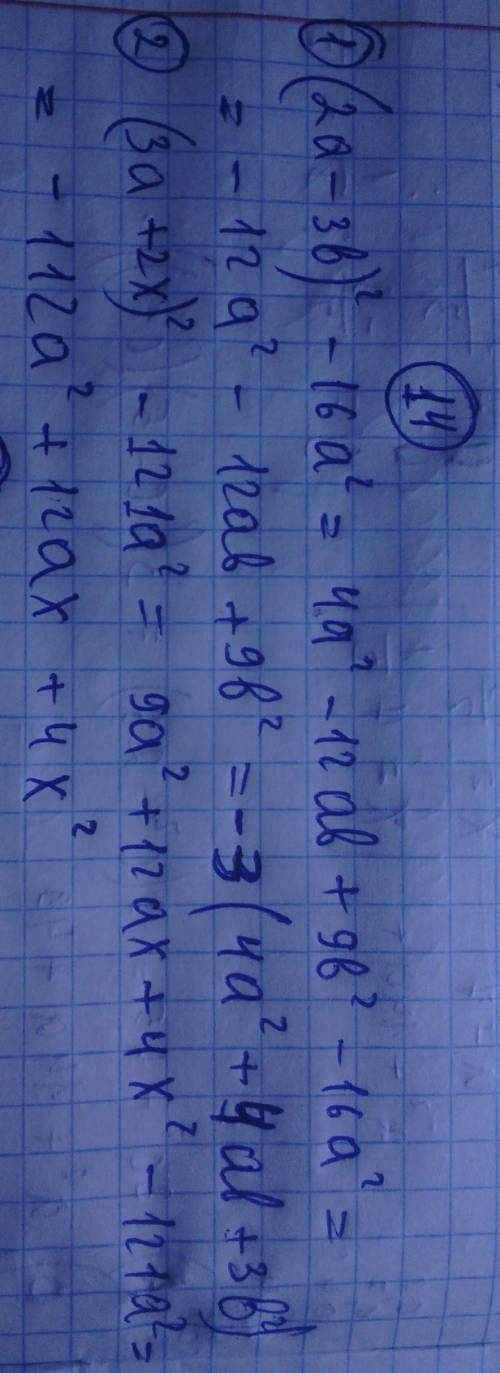 14
1 (2a-3b)² - 16a² = 4a² - 12ab + 9b² - 16a² =
= - 12a² - 12ab + 9b² = -3(4a² + 4ab + 3b²)
2 (3a + 2x)² - 121a² = 9a² + 12ax + 4x² - 121a² =
= - 112a² + 12ax + 4x²